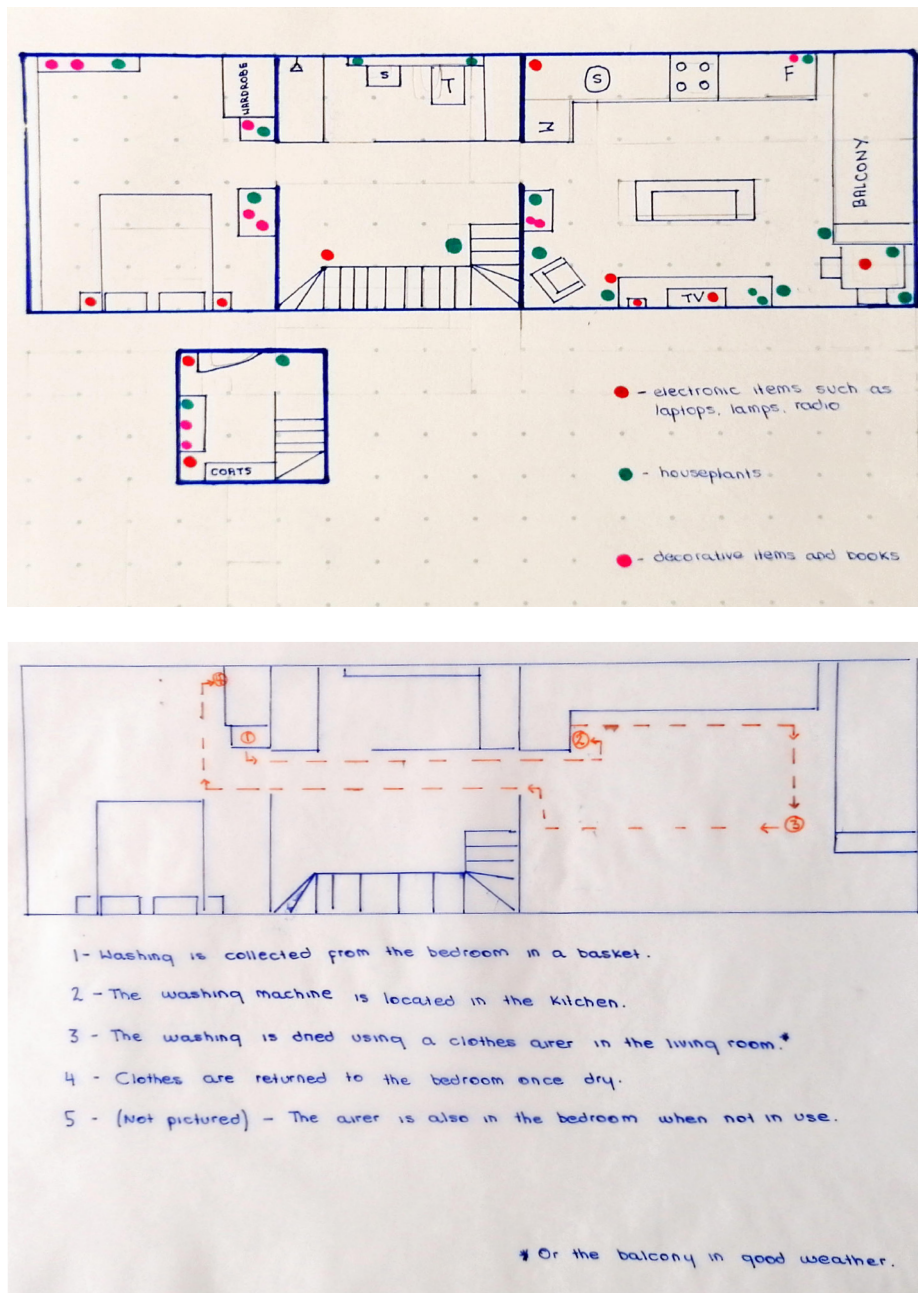 WARDROBE
S
T
S
F
Z
BALCONY
TV
COATS
- electronic items such as
laptops, lamps, radio
- houseplants
- decorative items and books
4
1
2
3
1- Washing is collected from the bedroom in a basket.
2 - The washing machine is located in the kitchen.
3 - The washing is dried using a clothes airer in the living room.*
4 - Clothes are returned to the bedroom once dry.
5 - (Not pictured) - The airer is also in the bedroom when not in use.
* Or the balcony in good weather.